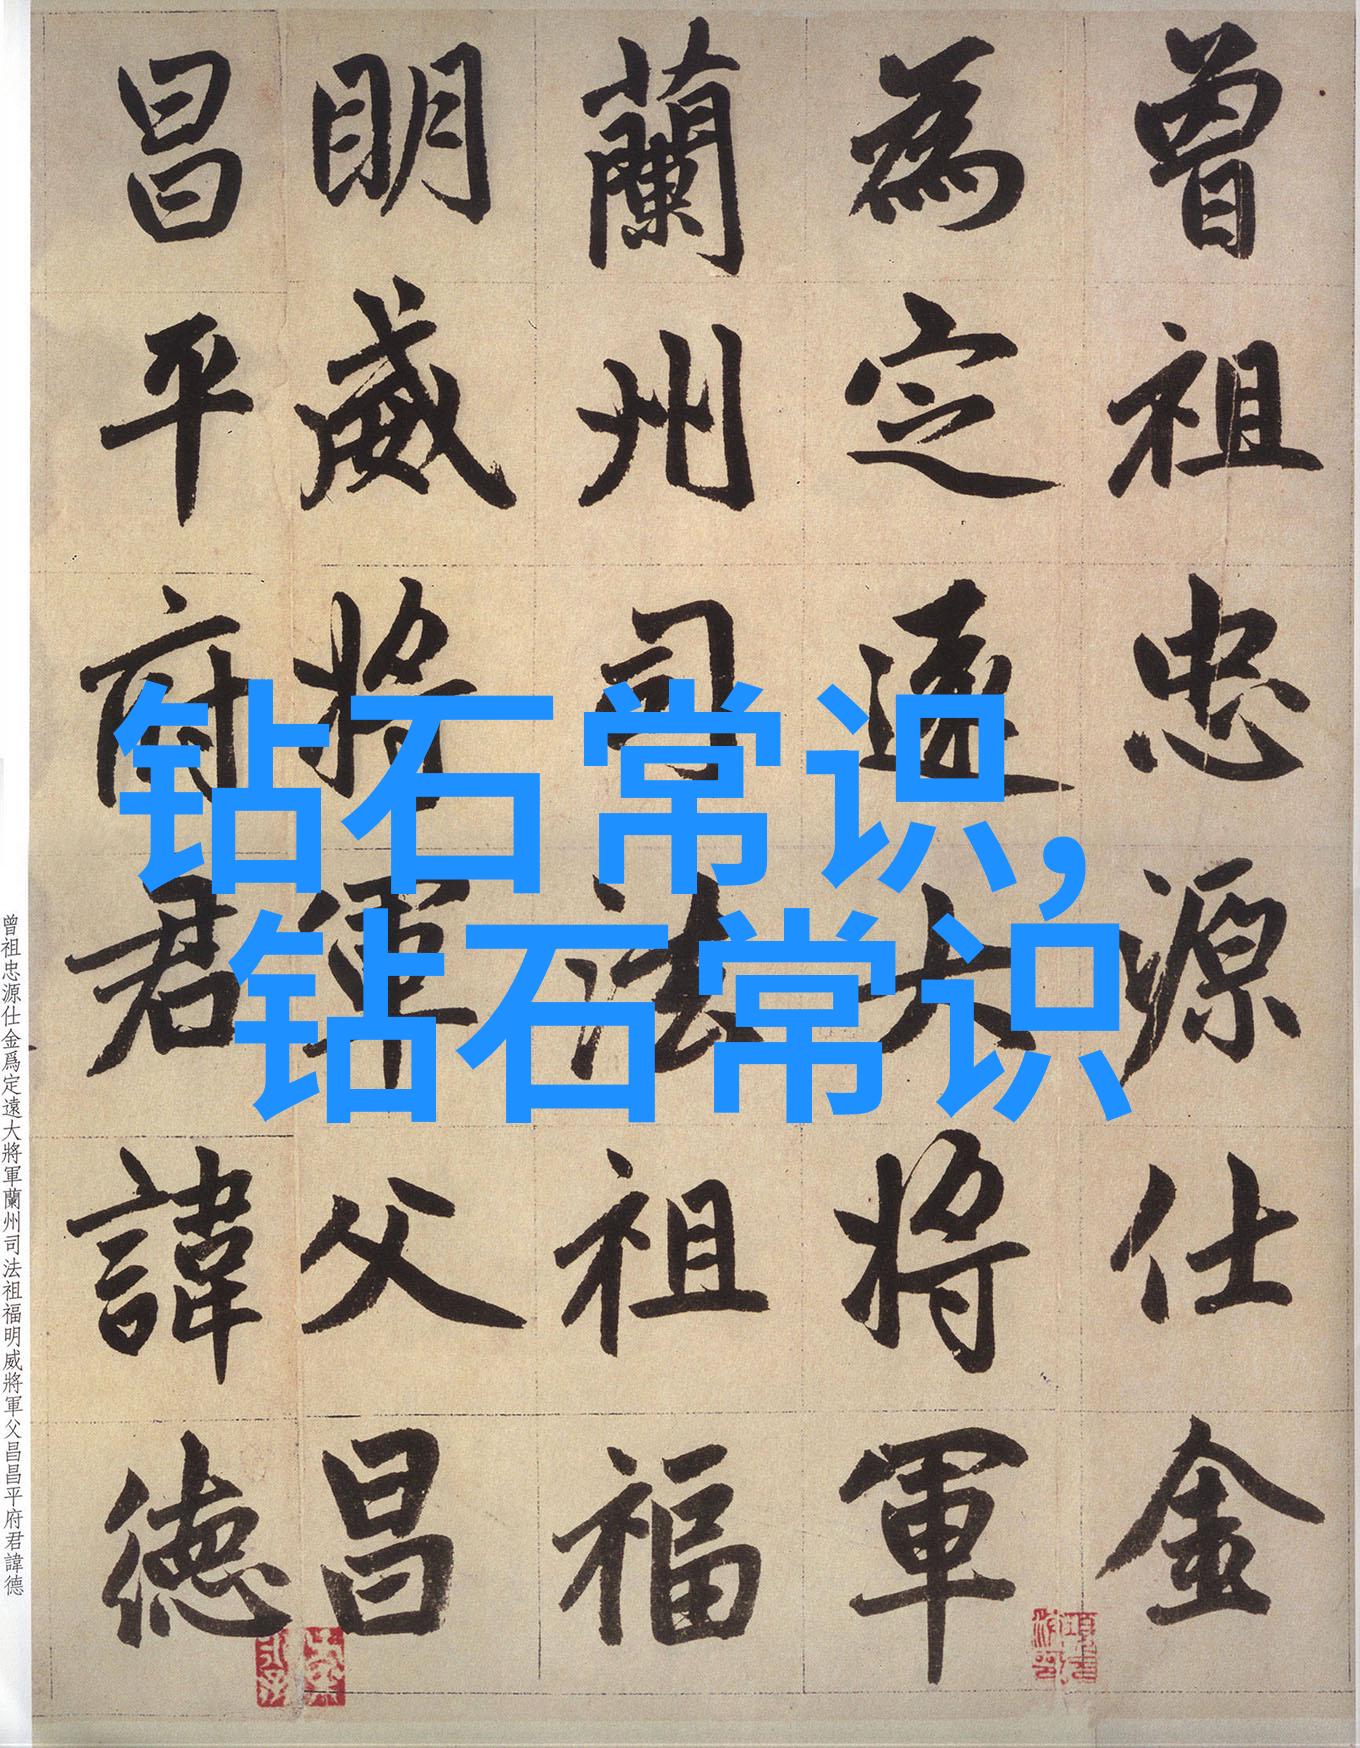 曾祖忠源仕金
為定遠大将軍
蘭州司法祖福
明威将軍父昌
昌平府君諱德
钻石常识,
钻石常识
曾祖忠源仕金爲定遠大將軍蘭州司法祖福明威將軍父昌昌平府君諱德